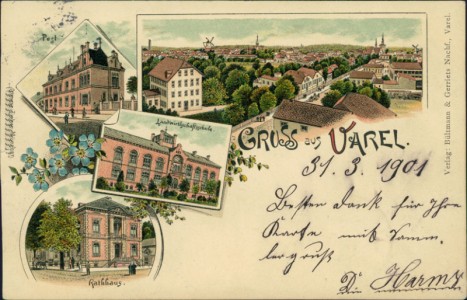 Post.
Landwirthschaftsschule
GRUSS aus VAREL.
Verlag: Bültmann & Gerriets Nachf., Varel.
31. 3. 1901
Besten Dank für Ihre
Karte mit Samm
lergruß
Rathhaus.